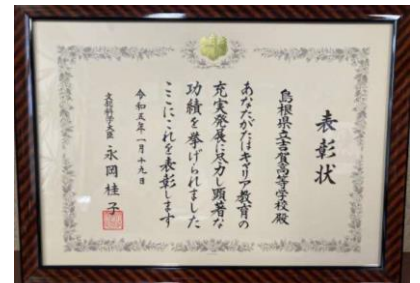 表彰状
島根県立吉賀高等学校殿
あなたがたはキャリア教育の
充実発展に尽力し顕著な
功績を挙げられました
ここにこれを表彰します
令和五年一月十九日
文部科学大臣 永岡桂子